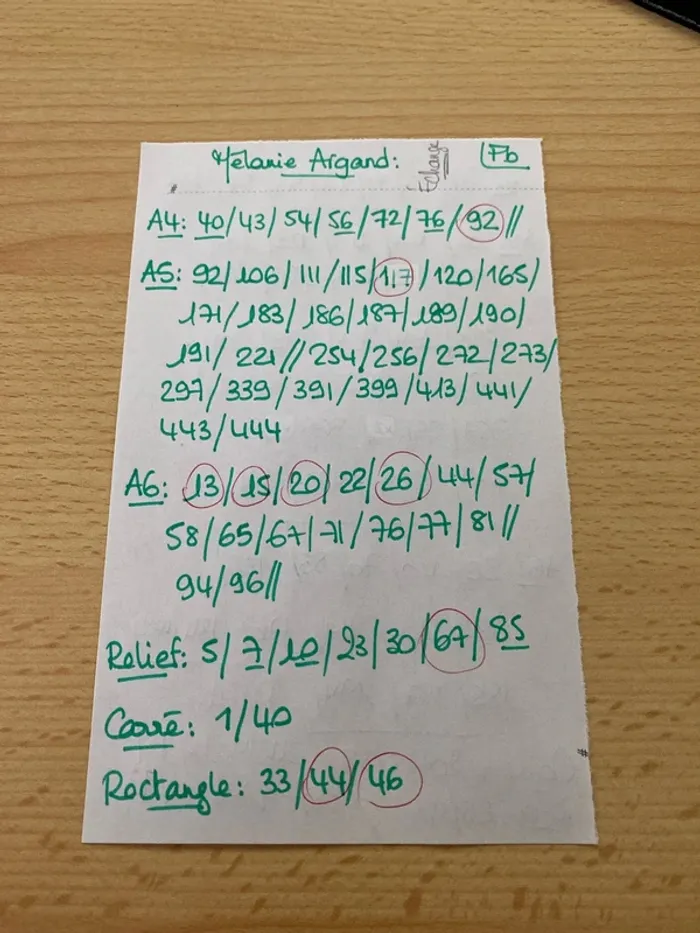 Mélanie Argand: Échange Fb
A4: 40/43/54/56/72/76/92//
A5: 92/106/111/115/117/120/165/
171/183/186/187/189/190/
191/221//254/256/272/273/
297/339/391/399/413/441/
443/444
A6: 13/15/20/22/26/44/57/
58/65/67/71/76/77/81//
94/96//
Relief: 5/7/10/23/30/67/85
Carré: 1/40
Rectangle: 33/44/46